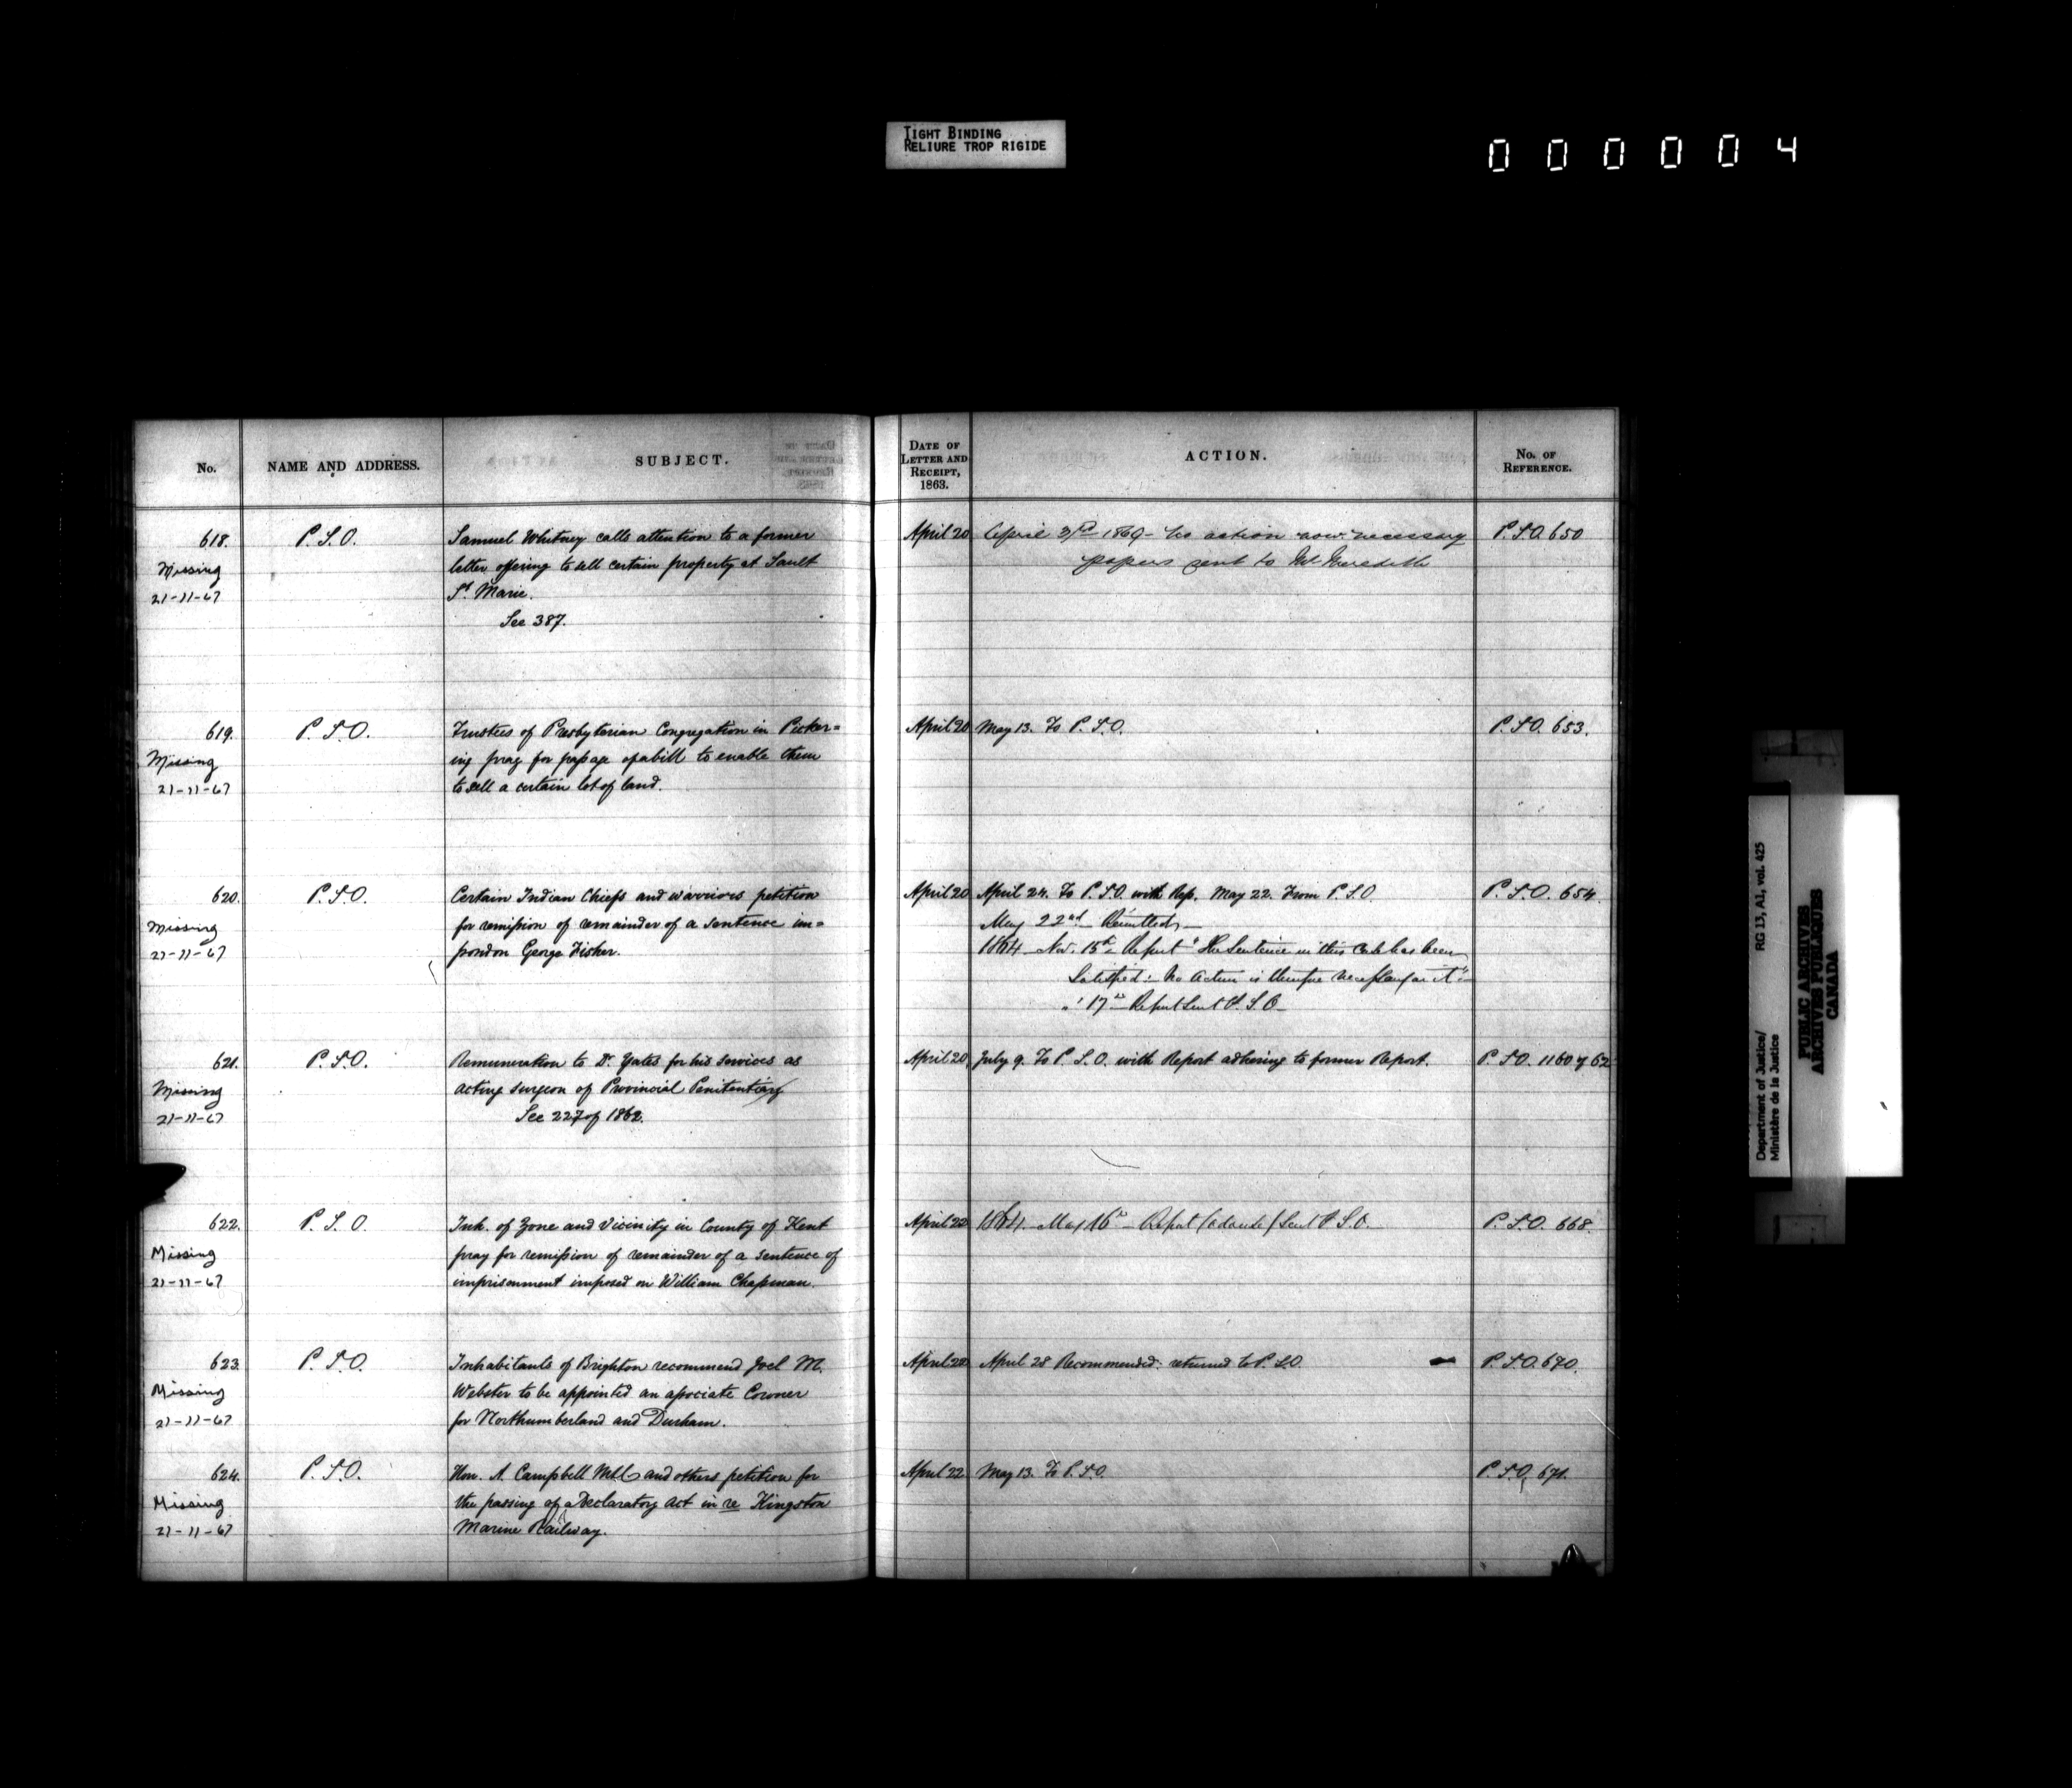 TIGHT BINDING
RELIURE TROP RIGIDE
000004
No.
NAME AND ADDRESS.
SUBJECT.
DATE OF
LETTER AND
RECEIPT,
1863.
ACTION.
No. OF
REFERENCE.
618.
Missing
21-11-67
P.S.O.
Samuel Whitney calls attention to a former
letter offering to sell certain property at Sault
St Marie.
See 387.
April 20
April 3rd 1869 - No action now necessary
papers sent to Mr. Meredith
P.S.O. 650
619.
Missing
21-11-67
P.S.O.
Trustees of Presbyterian Congregation in Picker=
ing pray for passage of a bill to enable them
to sell a certain lot of land.
April 20
May 13. To P.S.O.
P.S.O. 653.
620.
Missing
21-11-67
P.S.O.
Certain Indian Chiefs and warriors petition
for remission of remainder of a sentence im=
posed on George Fisher.
April 20
April 24. To P.S.O. with Rep. May 22. From P.S.O.
May 22nd - Remitted -
1864 - Nov. 15th - Report "The Sentence in this Case has been
Satisfied: - No Action is therefore necessary on it"
" 17th - Report Sent P.S.O -
P.S.O. 654.
621.
Missing
21-11-67
P.S.O.
Remuneration to Dr Yates for his services as
acting surgeon of Provincial Penitentiary
See 227 of 1862.
April 20
July 9. To P.S.O. with Report adhering to former Report.
P.S.O. 1160 of 62
622.
Missing
21-11-67
P.S.O.
Inh. of Zone and Vicinity in County of Kent
pray for remission of remainder of a sentence of
imprisonment imposed on William Chapman.
April 22
1864 - May 16th - Report Sent P.S.O.
P.S.O. 668.
623.
Missing
21-11-67
P.S.O.
Inhabitants of Brighton recommend Joel M.
Webster to be appointed an associate Coroner
for Northumberland and Durham.
April 22
April 28 Recommended: returned to P.S.O.
P.S.O. 670.
624.
Missing
21-11-67
P.S.O.
Hon. A. Campbell MLC and others petition for
the passing of a Declaratory Act in re Kingston
Marine Railway.
April 22
May 13. To P.S.O.
P.S.O. 671.
Department of Justice/ RG 13, A1, vol. 425
Ministère de la Justice
PUBLIC ARCHIVES
ARCHIVES PUBLIQUES
CANADA